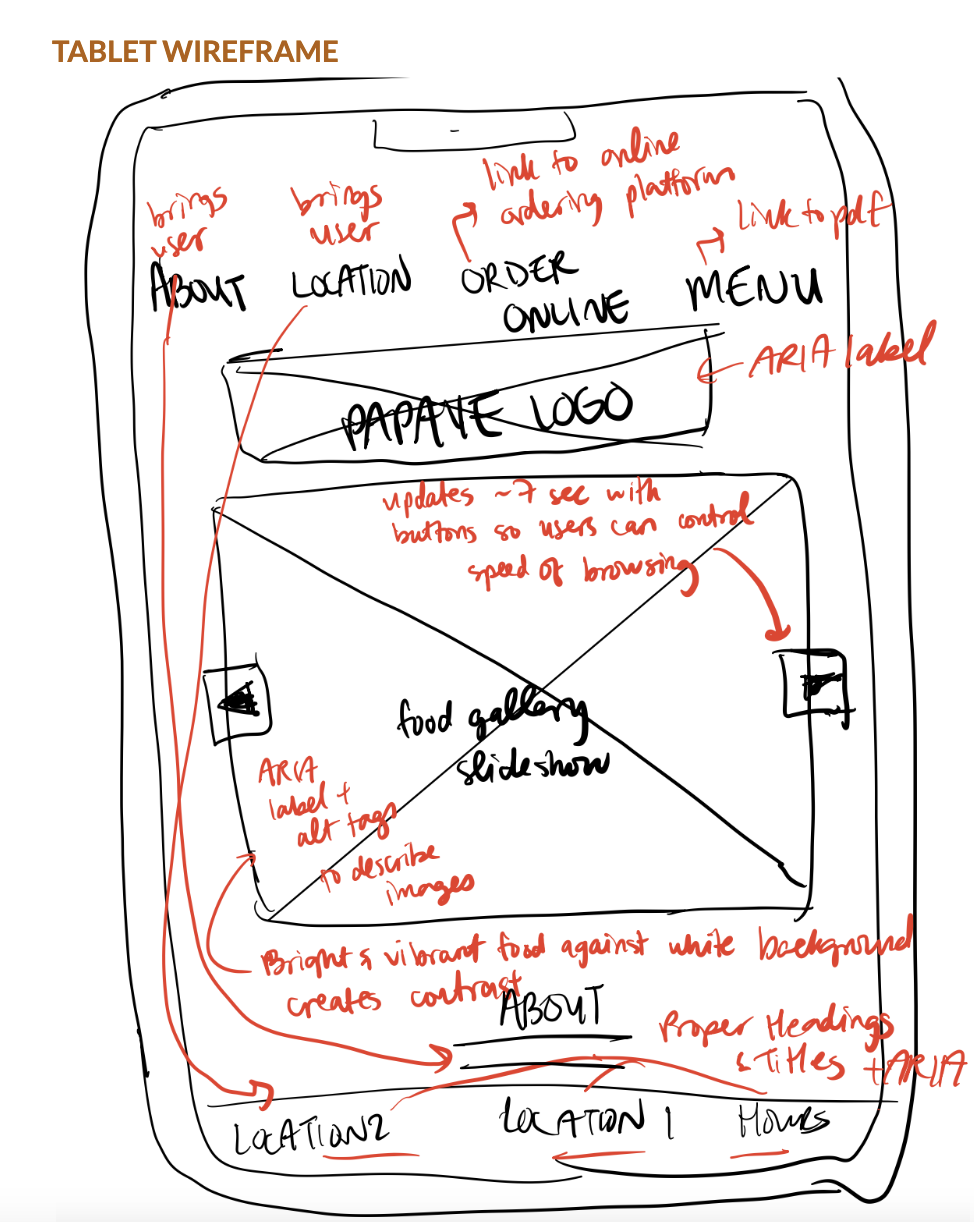 TABLET WIREFRAME
brings
user
brings
user
link to online
ordering platform
Link to pdf
ABOUT
LOCATION
ORDER
ONLINE
MENU
ARIA label
PAPAYE LOGO
updates ~7 sec with
buttons so users can control
speed of browsing
food gallery
slideshow
ARIA
label +
alt tags
to describe
images
Bright & vibrant food against white background
creates contrast
ABOUT
Proper Headings
& Titles + ARIA
LOCATION 2
LOCATION 1
HOURS